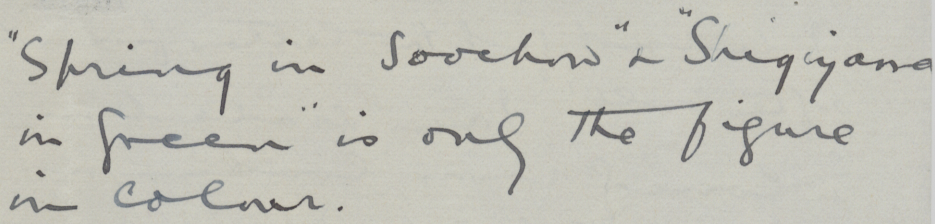 "Spring in Soochow" & "Shigiyama
in Green" is only the figure
in colour.